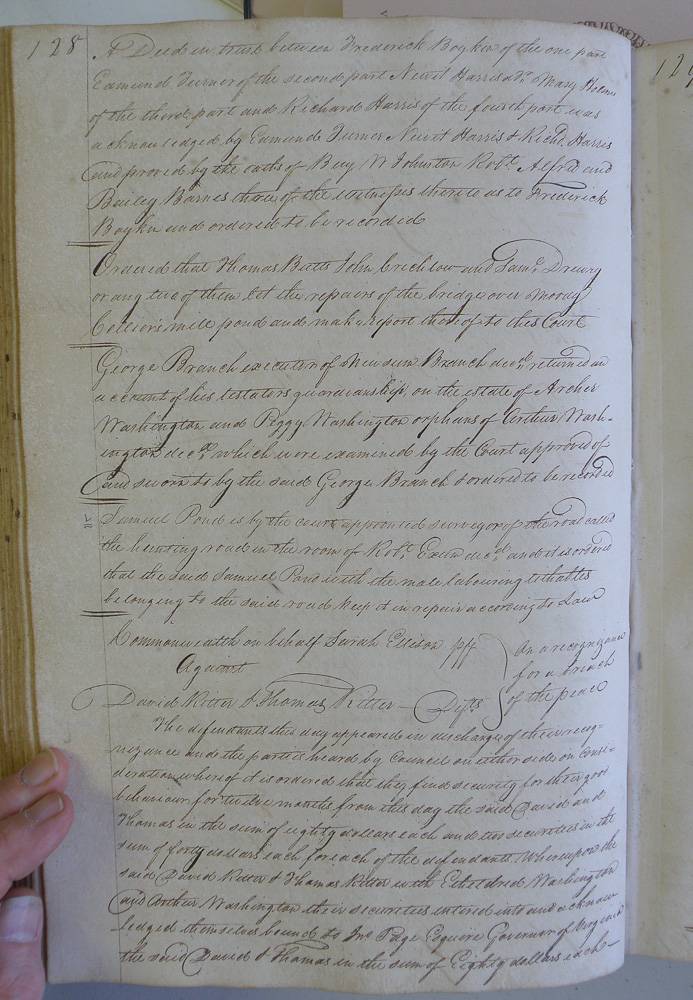 128
A Deed in trust between Frederick Boykin of the one part
Edmund Turner of the second part Newit Harris & Mary Holmes
of the third part and Richard Harris of the fourth part was
acknowledged by Edmund Turner Newit Harris & Richd. Harris
and proved by the oaths of Benj W Johnston Robt. Alfred and
Bailey Barnes three of the witnesses thereto as to Frederick
Boykin and ordered to be recorded
Ordered that Thomas Butts John Crichlow and Saml. Drewry
or any two of them let the repairs of the bridge over Moody
mill pond and make report thereof to this Court
George Branch executor of Newsum Branch decd. returned an
account of his testators guardianship on the estate of Archer
Washington and Peggy Washington orphans of Arthur Wash-
ington decd. which were examined by the Court approved of
and sworn to by the said George Branch & ordered to be recorded
Samuel Pond is by the court appointed surveyor of the road called
the hunting road in the room of Robt. decd. and it is ordered
that the said Samuel Pond with the male labouring tithables
belonging to the said road keep it in repair according to Law
Commonwealth on behalf Sarah Ellison plf
Against
David Ritter & Thomas Ritter Defts
On a recognizance
for a breach
of the peace
The defendants this day appeared in discharge of their recog-
nizance and the parties heard by Council on either side on consi-
deration whereof it is ordered that they find security for their good
behaviour for twelve months from this day the said David and
Thomas in the sum of eighty dollars each and two securities in the
sum of forty dollars each for each of the defendants. Whereupon the
said David Ritter & Thomas Ritter with Etheldred Washington
and Arthur Washington their securities entered into and acknow
ledged themselves bound to Jno. Page Esquire Governor of Virginia
the said David & Thomas in the sum of Eighty dollars each
129